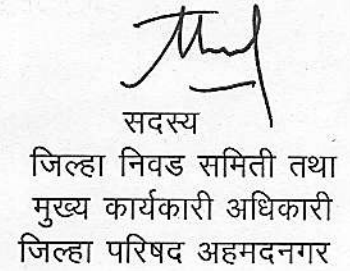 सदस्य
जिल्हा निवड समिती तथा
मुख्य कार्यकारी अधिकारी
जिल्हा परिषद अहमदनगर